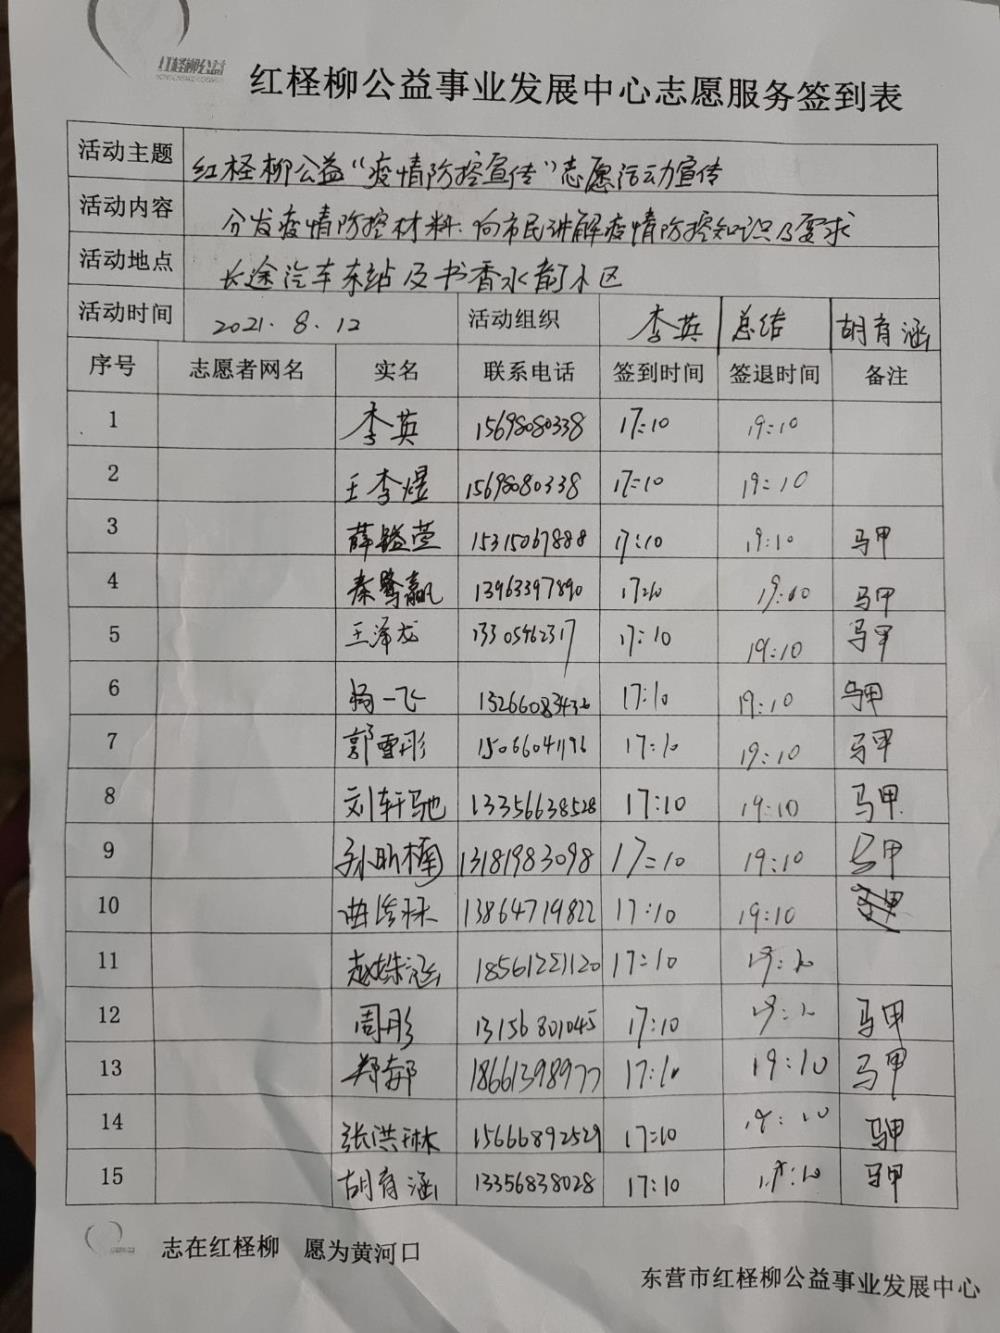 红柽柳公益
红柽柳公益事业发展中心志愿服务签到表
活动主题 红柽柳公益“疫情防控宣传”志愿活动宣传
活动内容 分发疫情防控材料.向市民讲解疫情防控知识及要求
活动地点 长途汽车东站及书香水都小区
活动时间 2021.8.12 活动组织 李英 总结 胡育涵
序号 志愿者网名 实名 联系电话 签到时间 签退时间 备注
1 李英 15698080338 17:10 19:10
2 王李煜 15698080338 17:10 19:10
3 薛镒萱 15315067888 17:10 19:10 马甲
4 秦鹭赢 13963397890 17:10 19:10 马甲
5 王泽龙 13305462317 17:10 19:10 马甲
6 杨一飞 17:10 19:10 马甲
7 郭雪彤 15066041196 17:10 19:10 马甲
8 刘轩驰 13356638528 17:10 19:10 马甲
9 孙昕楠 13181983098 17:10 19:10 马甲
10 曲 林 13864719822 17:10 19:10
11 赵姝涵 18561221120 17:10
12 周彤 13156801045 17:10 马甲
13 郑 18661398977 17:10 19:10 马甲
14 张洪琳 15666892529 17:10 19:10 马甲
15 胡育涵 13356838028 17:10 19:10 马甲
志在红柽柳 愿为黄河口
东营市红柽柳公益事业发展中心